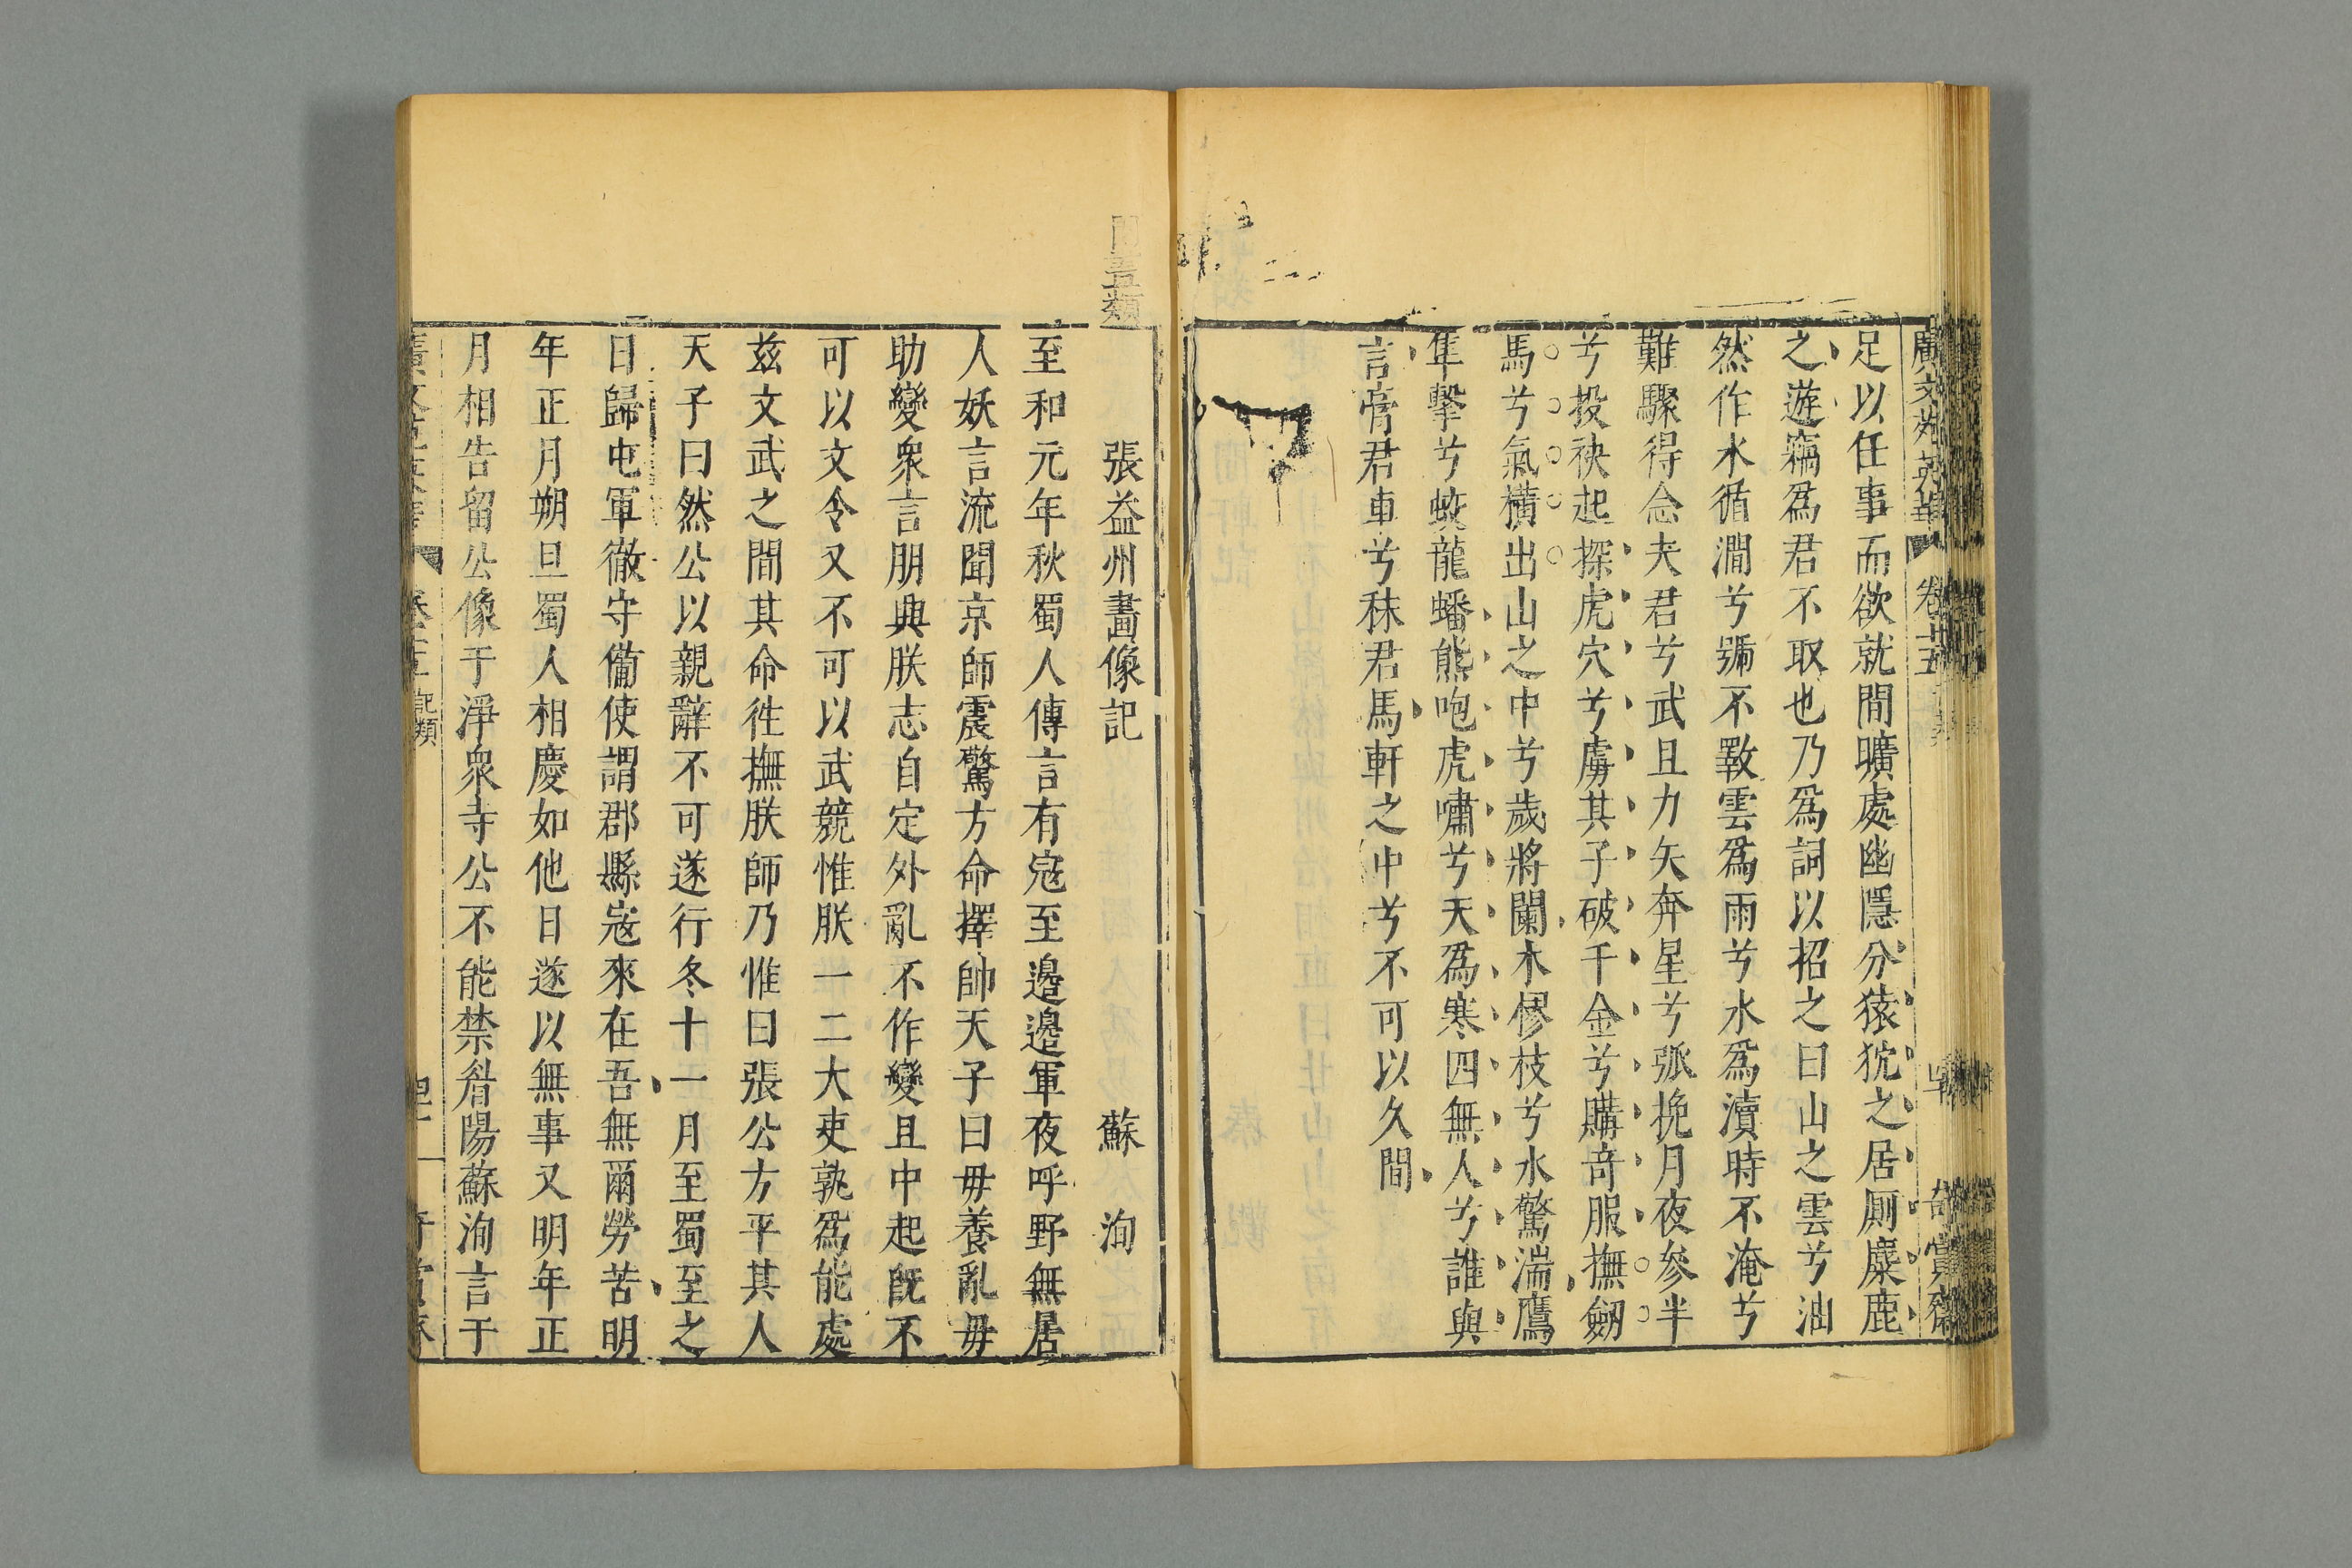 廣文苑英華 卷十五 奇賞齋
足以任事而欲就間曠處幽隱分猿狖之居厠麋鹿
之遊竊爲君不取也乃爲詞以招之曰山之雲兮油
然作水循澗兮號不斁雲爲雨兮水爲瀆時不淹兮
難驟得念夫君兮武且力矢奔星兮弧挽月夜參半
兮投袂起探虎穴兮虜其子破千金兮購奇服撫劒
馬兮氣橫出山之中兮歲將闌木樛枝兮水驚湍鷹
隼擊兮蛟龍蟠熊咆虎嘯兮天爲寒四無人兮誰與
言膏君車兮秣君馬軒之中兮不可以久間
張益州畫像記 蘇洵
至和元年秋蜀人傳言有寇至邊邊軍夜呼野無居
人妖言流聞京師震驚方命擇帥天子曰毋養亂毋
助變衆言朋興朕志自定外亂不作變且中起旣不
可以文令又不可以武競惟朕一二大吏孰爲能處
茲文武之間其命徃撫朕師乃惟曰張公方平其人
天子曰然公以親辭不可遂行冬十一月至蜀至之
日歸屯軍徹守備使謂郡縣寇來在吾無爾勞苦明
年正月朔旦蜀人相慶如他日遂以無事又明年正
月相告留公像于淨衆寺公不能禁眉陽蘇洵言于
記類